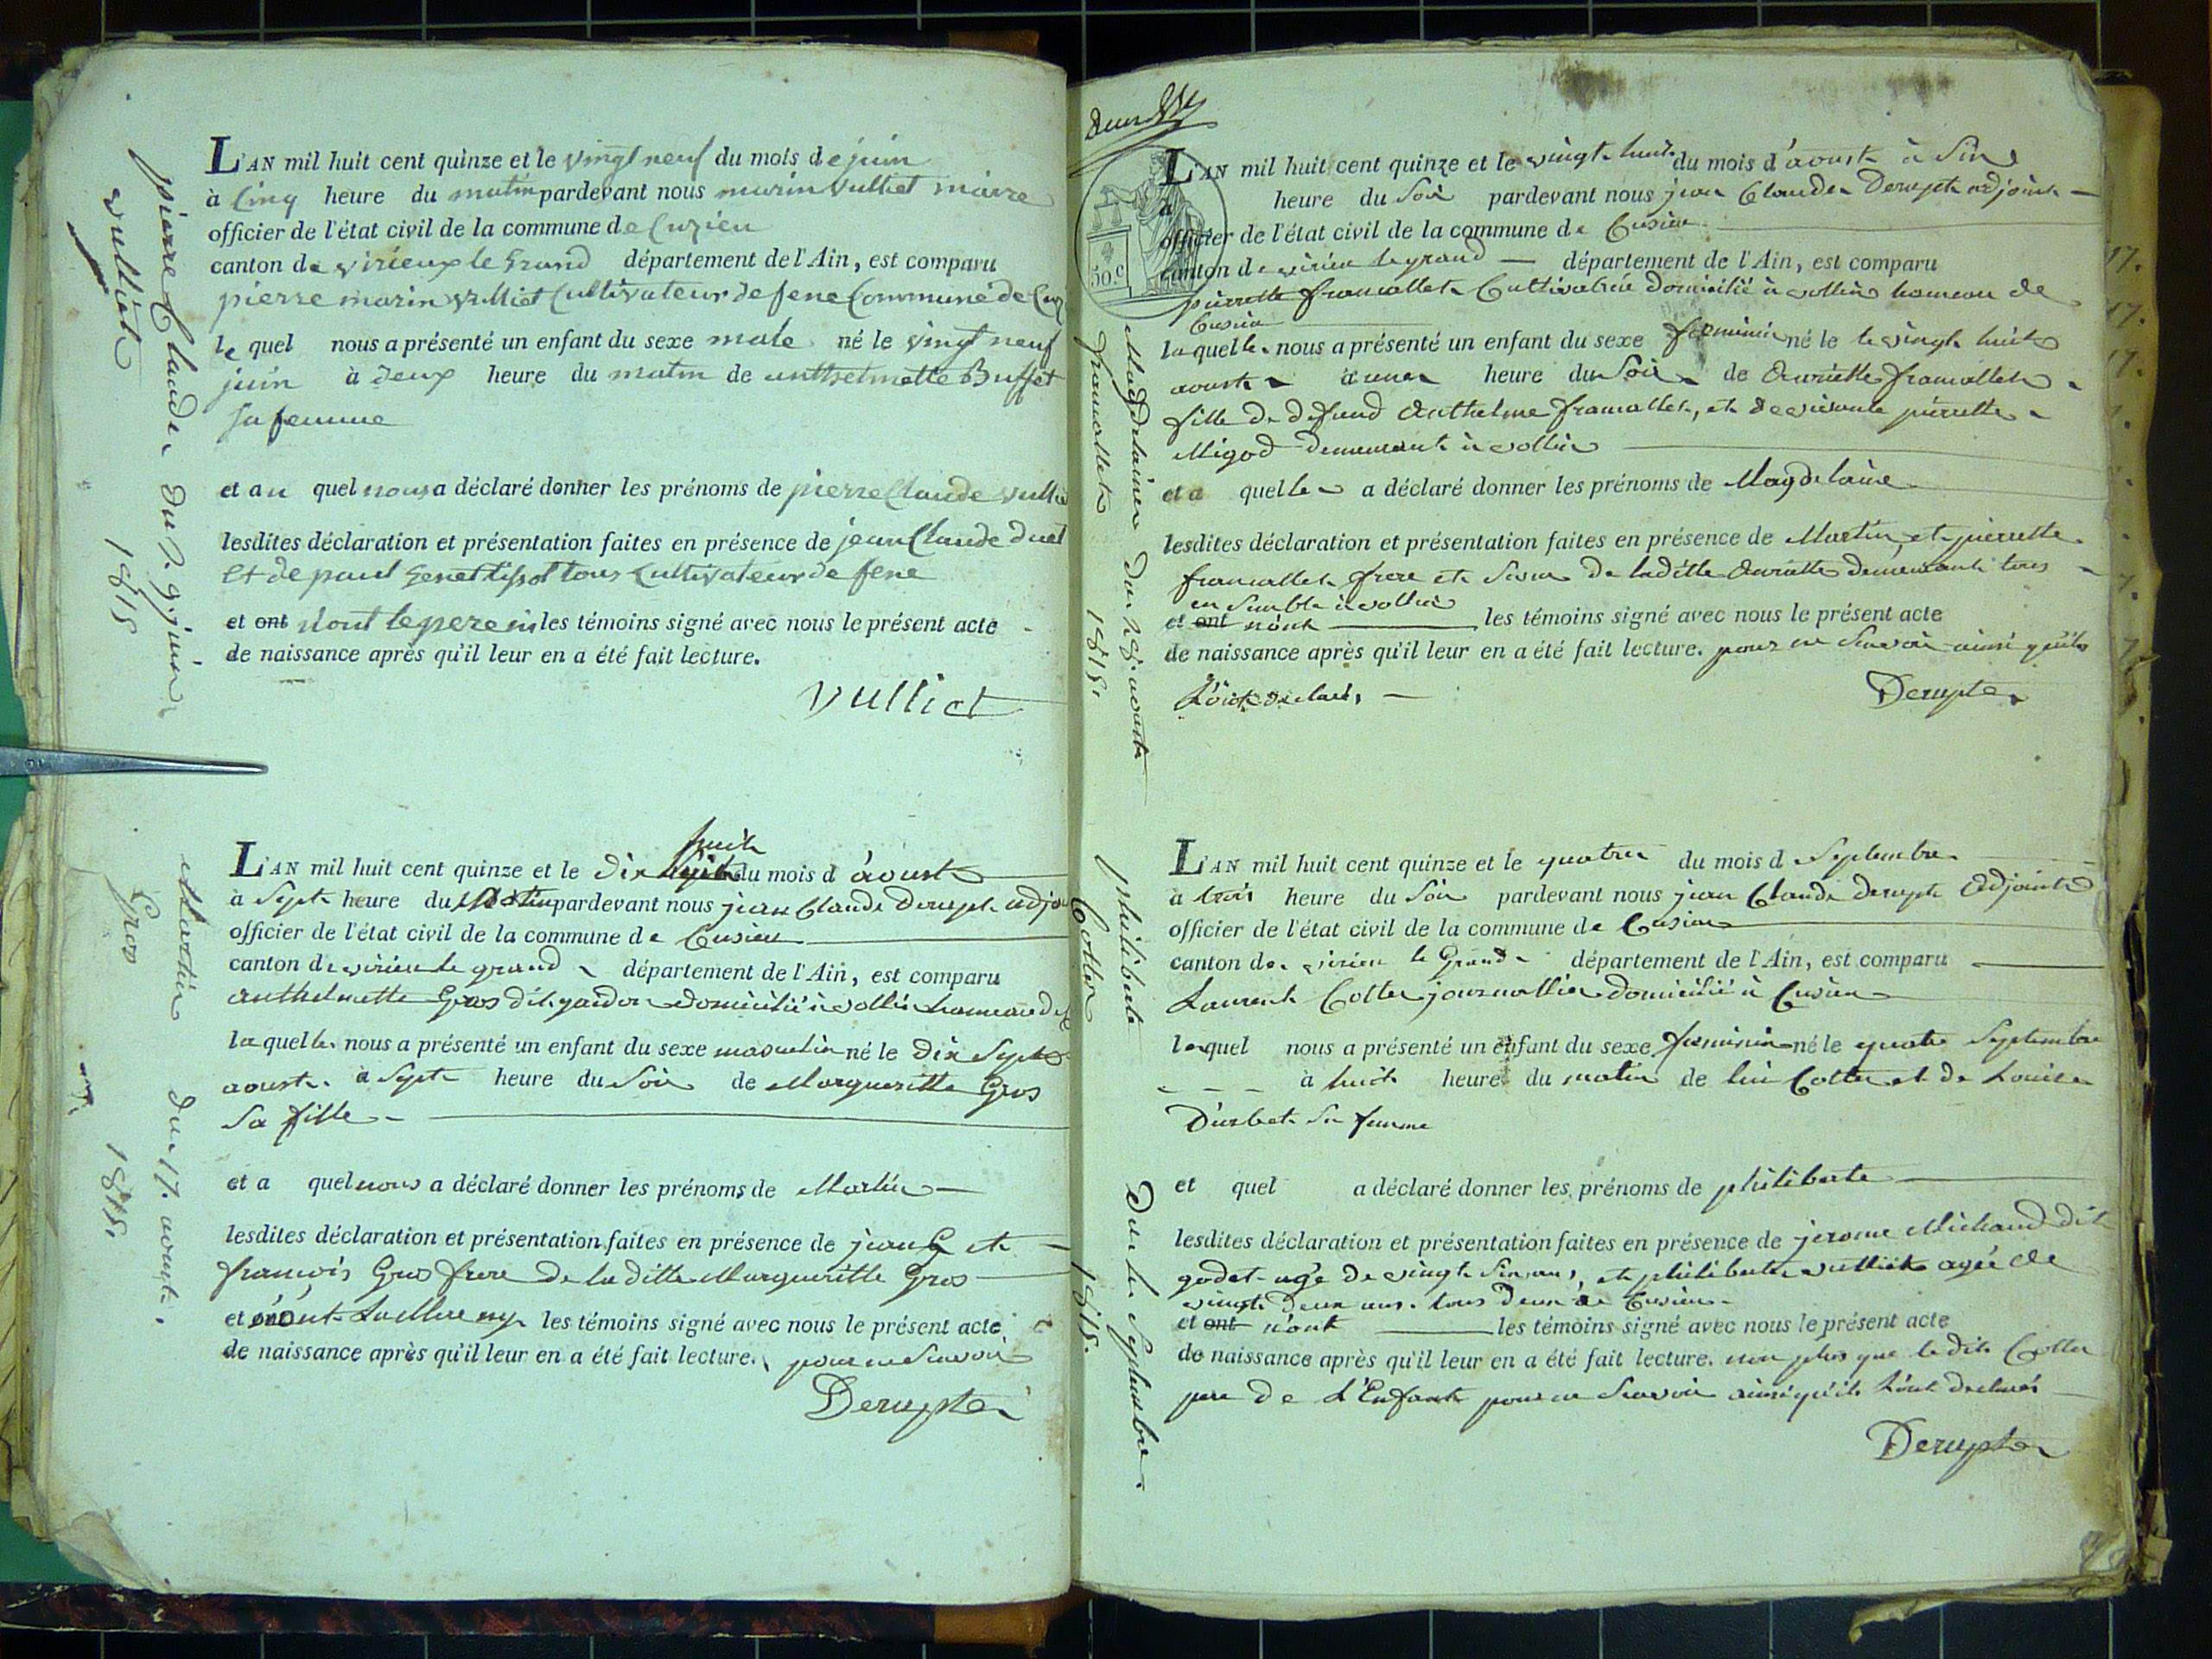 pierre Claude du 29. juin
vulliet 1815
L'AN mil huit cent quinze et le vingt neuf du mois de juin
à Cinq heure du matin pardevant nous marin Vulliet maire
officier de l'état civil de la commune de Cuzieu
canton de virieux le Grand département de l'Ain, est comparu
pierre marin vulliet Cultivateur de fene Commune de Cuz
le quel nous a présenté un enfant du sexe male né le vingt neuf
juin à deux heure du matin de anthelmette Buffet
sa femme
et au quel nous a déclaré donner les prénoms de pierre Claude vullie
lesdites déclaration et présentation faites en présence de jean Claude
et de paul tous Cultivateur de fene
et ont n'ont le pere ni les témoins signé avec nous le présent acte
de naissance après qu'il leur en a été fait lecture.
Vulliet
Martin du 17. aoust.
Gros 1815.
huit
L'AN mil huit cent quinze et le dix du mois d'aoust
à Sept heure du Matin pardevant nous jean Claude Derupt adjo
officier de l'état civil de la commune de Cusieu
canton de virieu le grand département de l'Ain, est comparu
anthelmette Gros dit domicilié à vollin hameau de
la quelle nous a présenté un enfant du sexe masculin né le dix Sept
aoust à Sept heure du Soir de Margueritte Gros
Sa fille
et a quel nous a déclaré donner les prénoms de Martin
lesdites déclaration et présentation faites en présence de jean G et
françois Gros frere de la ditte Margueritte Gros
et n'ont La Mere ny les témoins signé avec nous le présent acte
de naissance après qu'il leur en a été fait lecture. pour ne Scavoir
Derupt
50.c
Magdelaine du 28. aoust
framallet 1815.
L'AN mil huit cent quinze et le vingt huit du mois d'aoust à Sin
à heure du Soir pardevant nous jean Claude Derupt adjoint
officier de l'état civil de la commune de Cusieu
canton de virieu le grand département de l'Ain, est comparu
pierrette framallet Cultivatrice domicilié à vollin hameau de
Cusieu
la quelle nous a présenté un enfant du sexe feminin né le le vingt huit
aoust à une heure du Soir de framallet
fille de defund Anthelme framallet, et de vivante pierrette
Migod demeurant à vollin
et a quelle a déclaré donner les prénoms de Magdelaine
lesdites déclaration et présentation faites en présence de Martin et pierrette
framallet frere et Soeur de laditte demeurant tous
en Semble à vollin
et ont n'ont les témoins signé avec nous le présent acte
de naissance après qu'il leur en a été fait lecture. pour ne Scavoir ainsi qu'ils
L'ont declaré.
Derupt
philiberte du 4 Septembre.
Cotter 1815.
L'AN mil huit cent quinze et le quatre du mois d Septembre
à trois heure du Soir pardevant nous jean Claude Derupt Adjoint
officier de l'état civil de la commune de Cusieu
canton de virieu le Grand département de l'Ain, est comparu
Laurent Cotter journallier domicilié à Cusieu
lequel nous a présenté un enfant du sexe feminin né le quatre Septembre
à huit heure du matin de lui Cotter et de Louise
Durbet Sa femme
et quel a déclaré donner les prénoms de philiberte
lesdites déclaration et présentation faites en présence de jerome Michaud dit
godet agé de vingt Sin ans, et philiberte vulliet agée de
vingt deux ans. tous deux de Cusieu
et ont n'ont les témoins signé avec nous le présent acte
de naissance après qu'il leur en a été fait lecture. non plus que le dit Cotter
pere de L'Enfant pour ne Scavoir ainsi qu'ils L'ont declarés
Derupt